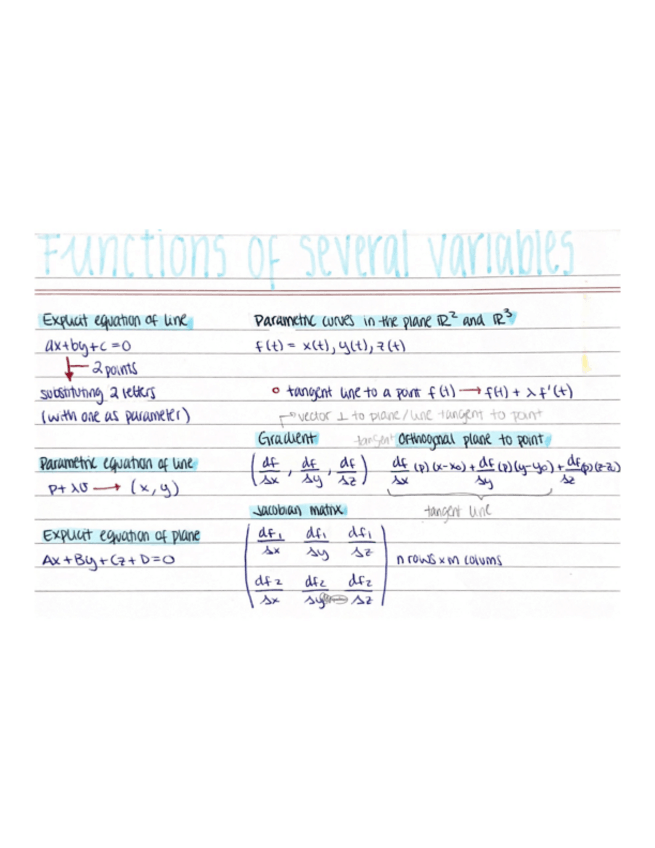 Functions of several variables
Explicit equation of line
ax+by+c=0
2 points
substituting 2 letters
(with one as parameter)
Parametric equation of line
p+λv → (x,y)
Explicit equation of plane
Ax+By+Cz+D=0
Parametric curves in the plane ℝ² and ℝ³
f(t) = x(t), y(t), z(t)
tangent line to a point f(t) → f(t) + λ f'(t)
vector ⊥ to plane/line tangent to point
Gradient
(df/Δx, df/Δy, df/Δz)
tangent Orthogonal plane to point
df/Δx (p)(x-x₀) + df/Δy (p)(y-y₀) + df/Δz (p)(z-z₀)
tangent line
Jacobian matrix
df₁/Δx df₁/Δy df₁/Δz
n rows x m colums
df₂/Δx df₂/Δy df₂/Δz